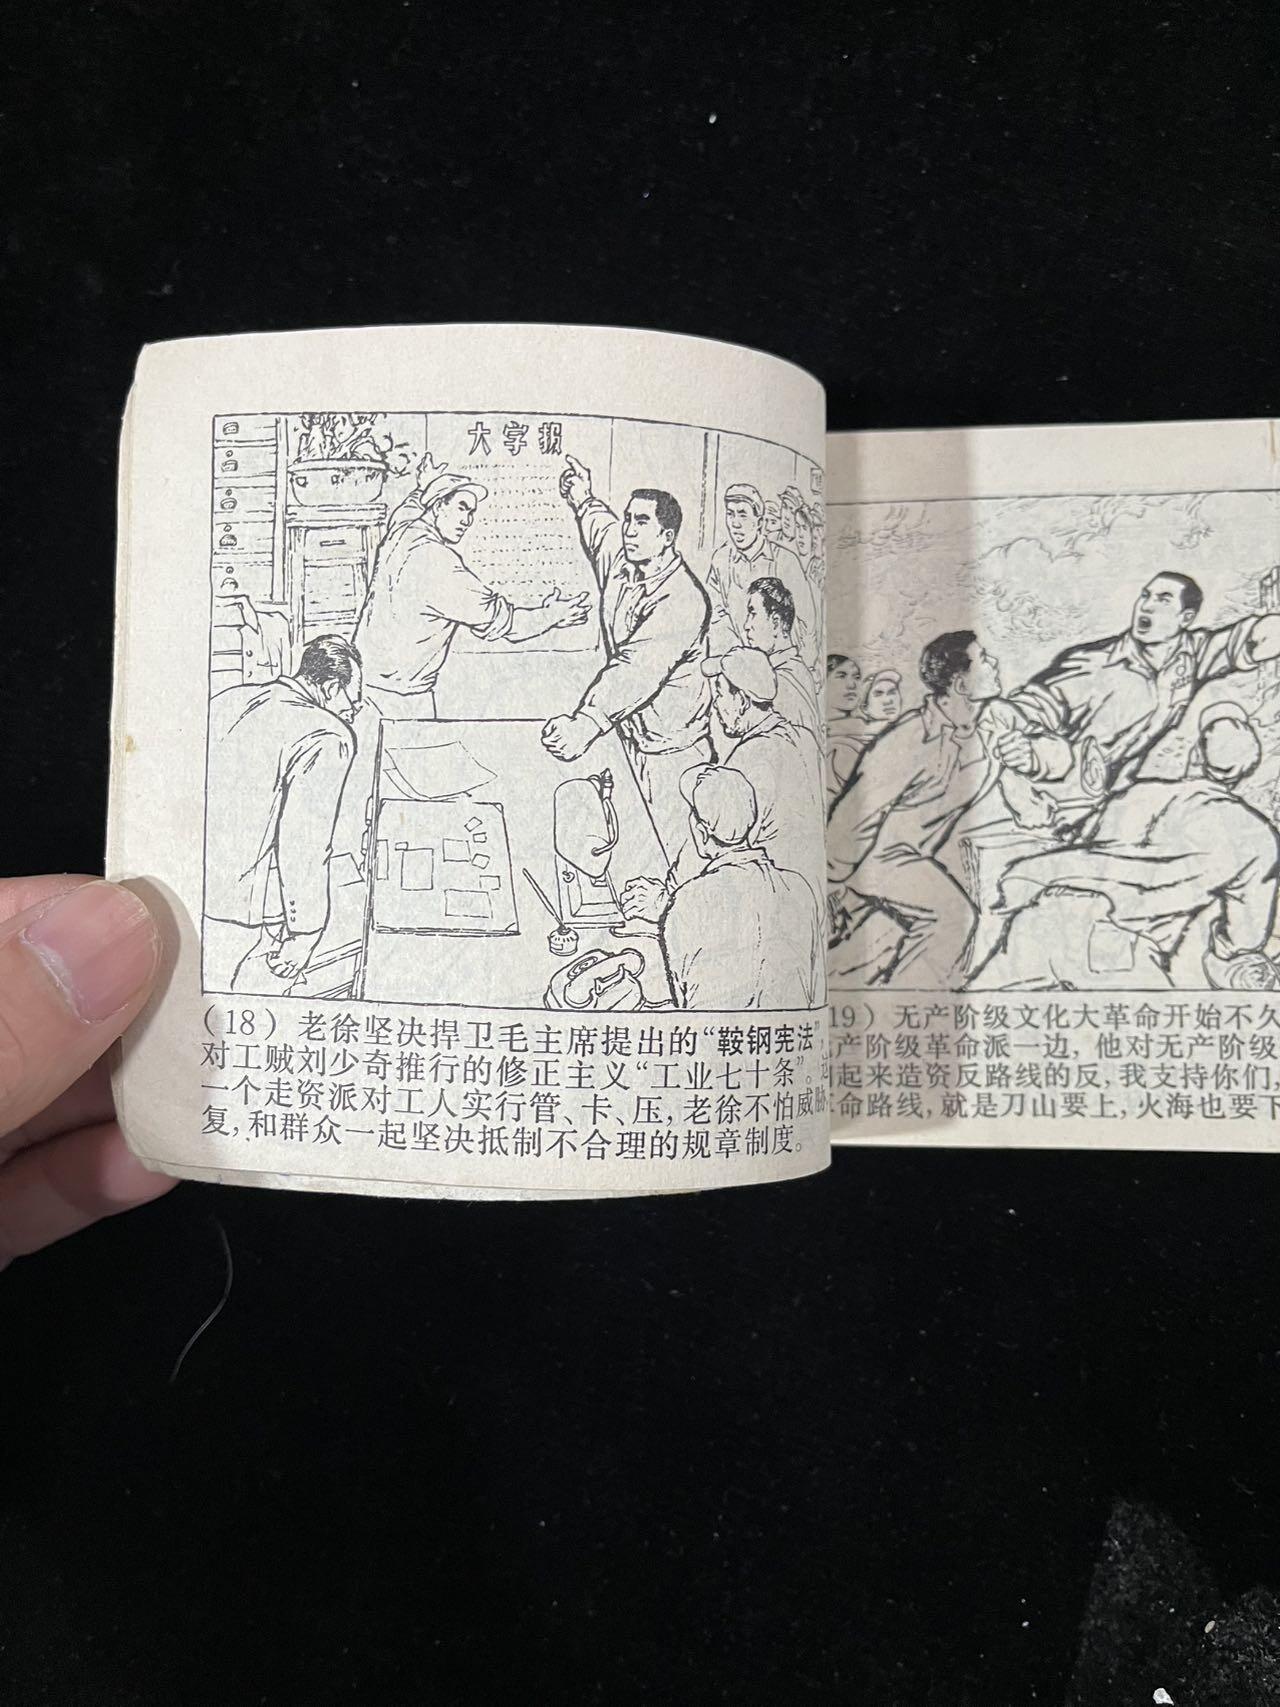 大字报
(18) 老徐坚决捍卫毛主席提出的“鞍钢宪法”，
对工贼刘少奇推行的修正主义“工业七十条”。
一个走资派对工人实行管、卡、压，老徐不怕威胁
复，和群众一起坚决抵制不合理的规章制度。
19) 无产阶级文化大革命开始不久
产阶级革命派一边，他对无产阶级
起来造资反路线的反，我支持你们，
命路线，就是刀山要上，火海也要下